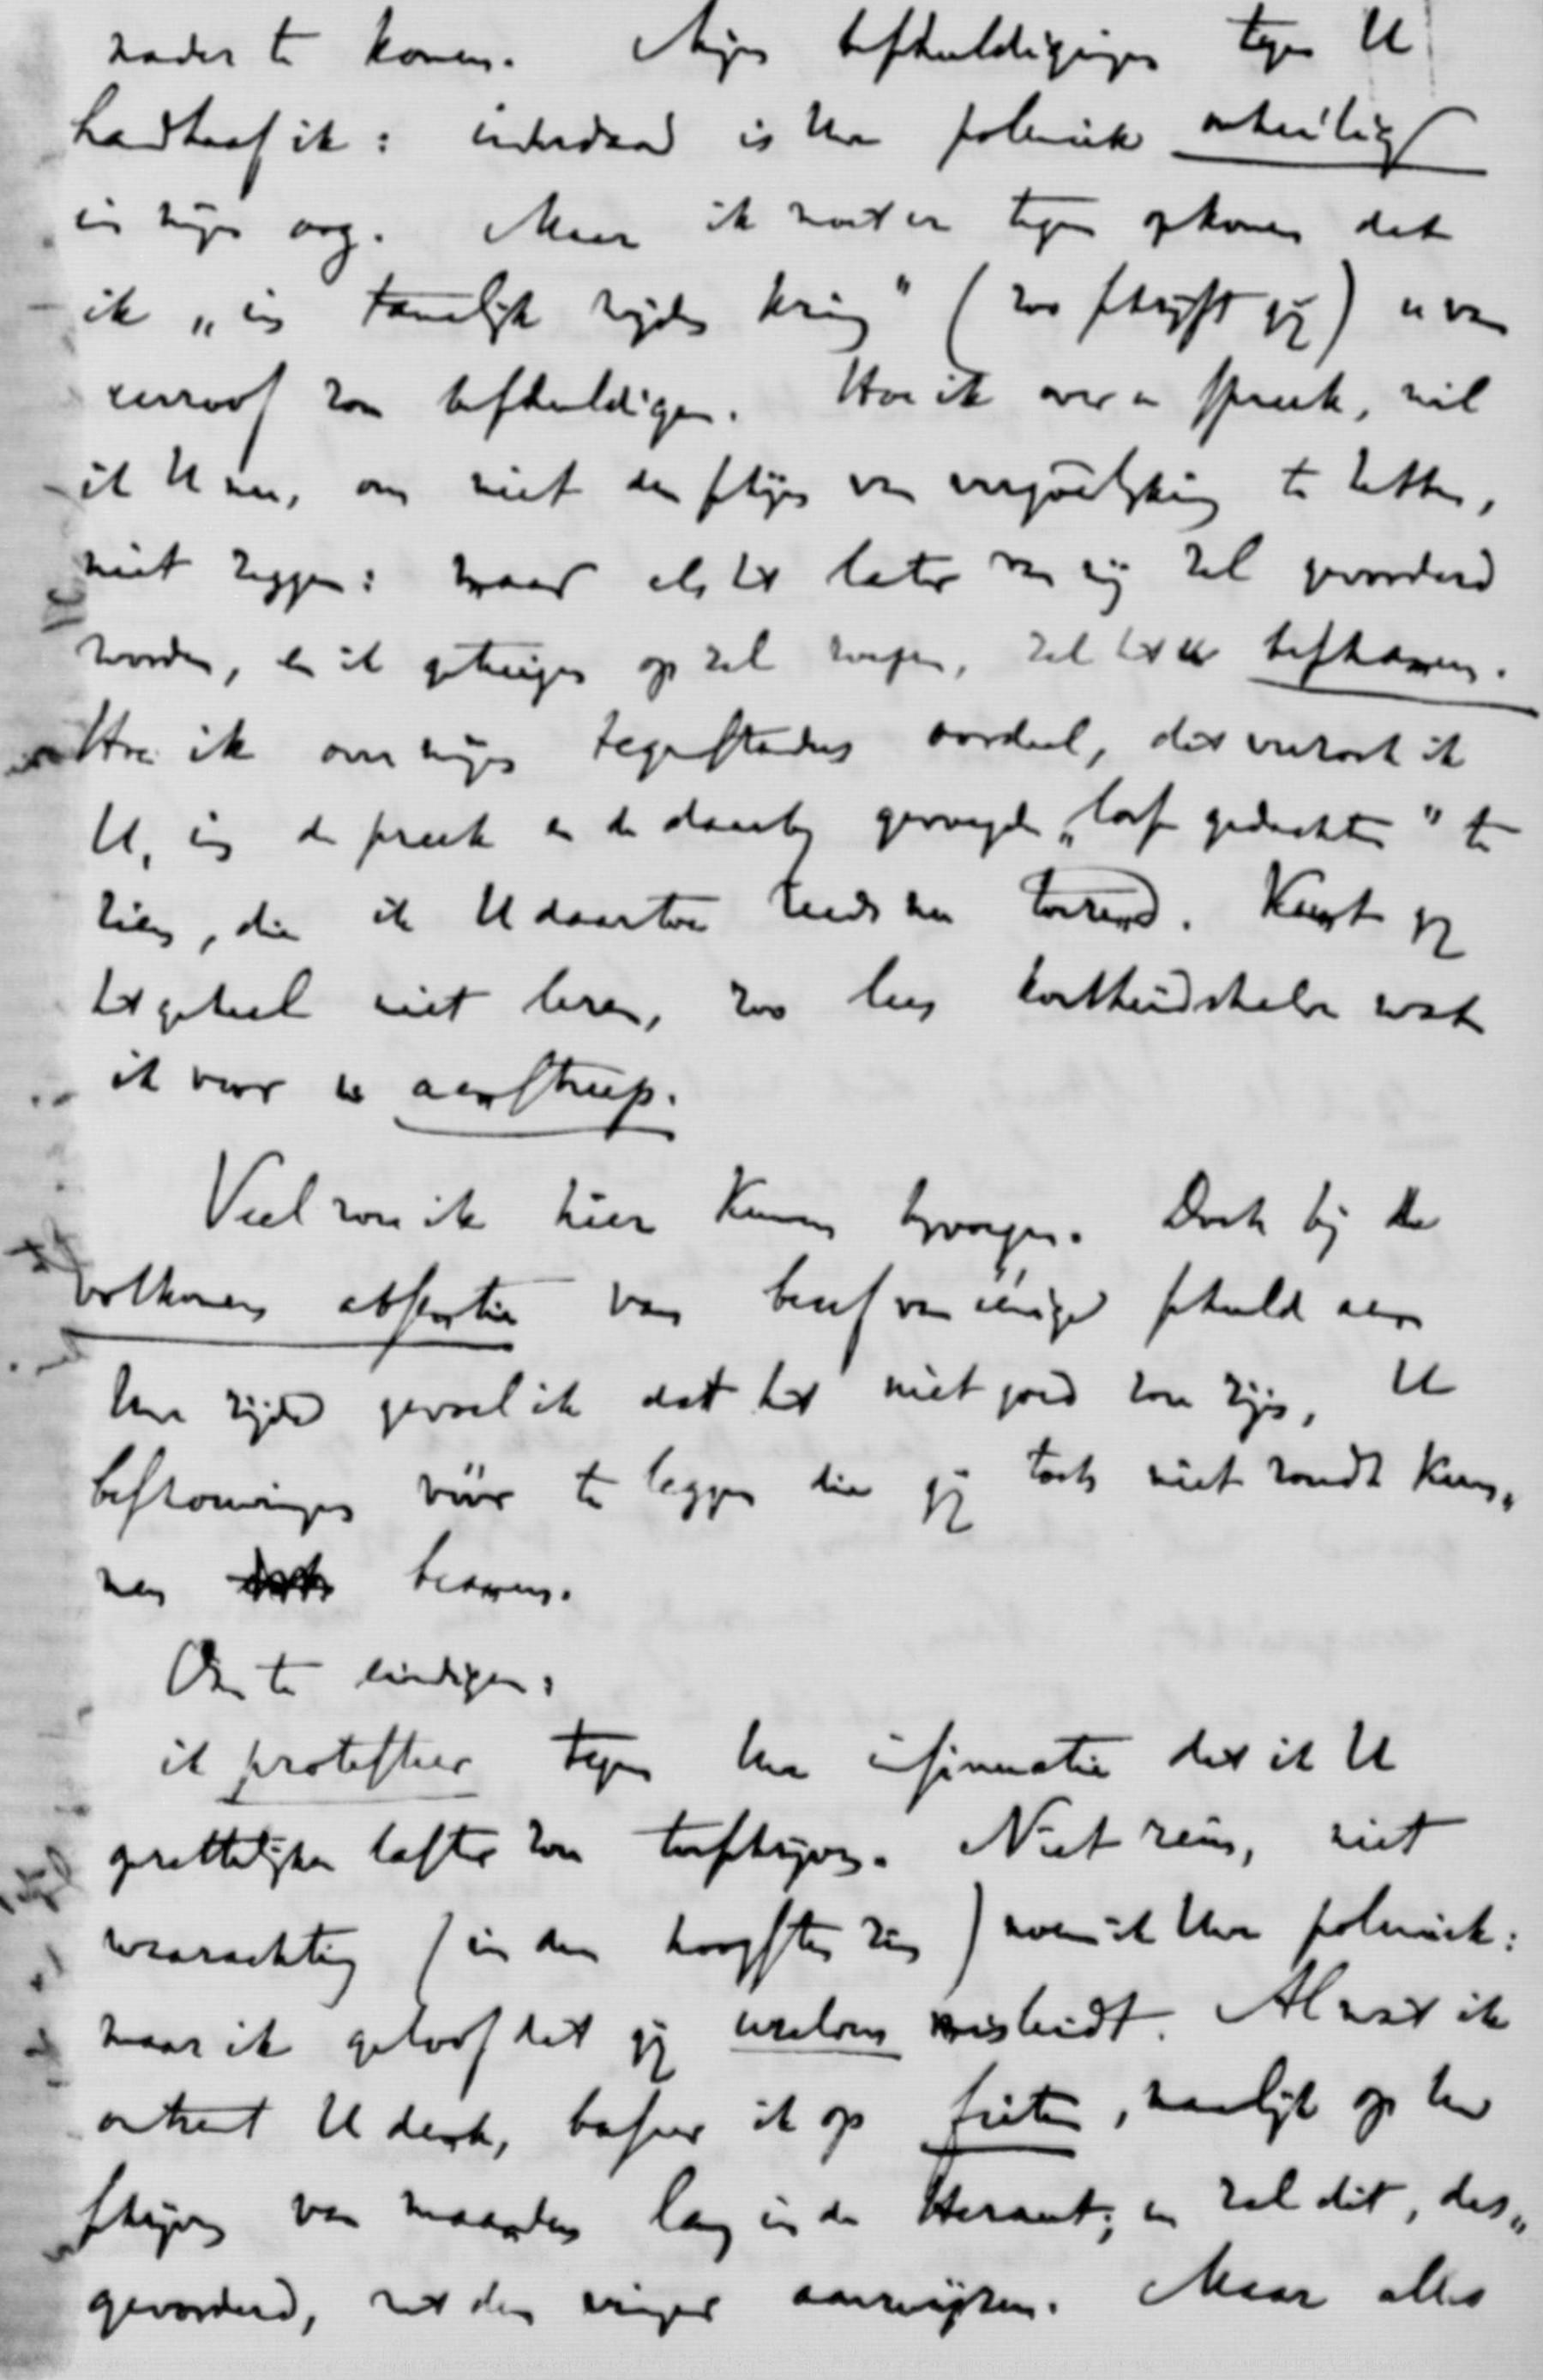 nader te komen. Mijn beschuldigingen tegen U
handhaaf ik: inderdaad is Uw polemiek onheilig
in mijn oog. Maar ik moet er tegen opkomen dat
ik „in tamelijk wijden kring" (zoo schrijft gij) u van
eerroof zou beschuldigen. Hoe ik over u spreek, wil
ik U nu, om niet den schijn van te hebben,
niet zeggen: maar als het later van mij zal gevorderd
worden, en ik getuigen op zal roepen, zal het u beschamen.
Hoe ik over mijn tegenstanders oordeel, dat verzoek ik
U, in de preek en de daarbij gevoegde „losse gedachten" te
zien, die ik U daartoe reeds nu toezend. Kunt gij
het geheel niet lezen, zoo lees kortheidshalve wat
ik voor u aanstreep.
Veel zou ik hier kunnen bijvoegen. Doch bij de
volkomen absentie van besef van eenige schuld aan
Uwe zijde gevoel ik dat het niet goed zou zijn, U
beschouwingen vóór te leggen die gij toch niet zoudt kun„
nen beamen.
Om te eindigen:
ik protesteer tegen Uwe insinuatie dat ik U
opzettelijken laster zou toeschrijven. Niet rein, niet
waarachtig (in den hoogsten zin) noem ik Uwe polemiek:
maar ik geloof dat gij uzelven misleidt. Al wat ik
omtrent U denk, baseer ik op feiten, namelijk op Uw
schrijven van maanden lang in de Heraut; en zal dit, des„
gevorderd, met den vinger aanwijzen. Maar alles